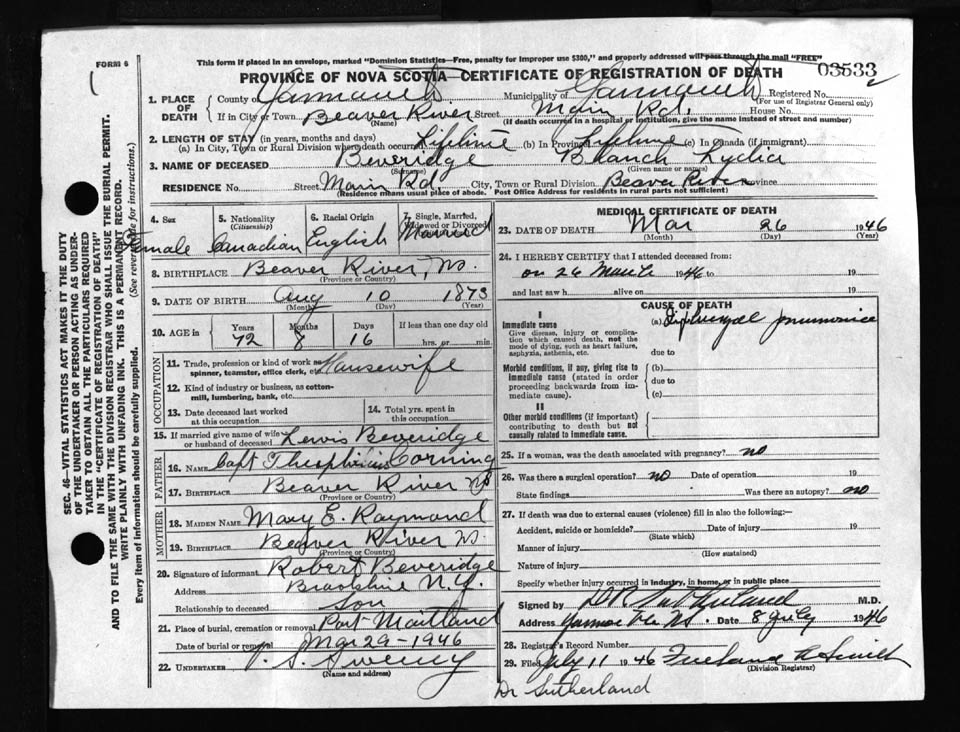 This form if placed in an envelope, marked "Dominion Statistics—Free, penalty for improper use $300," and properly addressed will pass through the mail "FREE"
FORM 6
PROVINCE OF NOVA SCOTIA—CERTIFICATE OF REGISTRATION OF DEATH
03533
1. PLACE OF DEATH
County of Yarmouth Municipality of Yarmouth Registered No.
(For use of Registrar General only)
If in City or Town Beaver River Street Main Rd. House No.
(Name) (If death occurred in a hospital or institution, give the name instead of street and number)
2. LENGTH OF STAY (in years, months and days)
(a) In City, Town or Rural Division where death occurred Lifetime (b) In Province Lifetime (c) In Canada (if immigrant)
3. NAME OF DECEASED Beveridge Blanch Lydia
(Surname) (Given name or names)
RESIDENCE No. Street Main Rd. City, Town or Rural Division Beaver River Province
(Residence means usual place of abode. Post Office Address for residents in rural parts not sufficient)
4. Sex Female
5. Nationality (Citizenship) Canadian
6. Racial Origin English
7. Single, Married, Widowed or Divorced Married
8. BIRTHPLACE Beaver River, N.S.
(Province or Country)
9. DATE OF BIRTH Aug 10 1873
(Month) (Day) (Year)
10. AGE in Years Months Days If less than one day old
72 8 16 hrs. or min.
OCCUPATION
11. Trade, profession or kind of work as spinner, teamster, office clerk, etc. Housewife
12. Kind of industry or business, as cotton-mill, lumbering, bank, etc.
13. Date deceased last worked at this occupation
14. Total yrs. spent in this occupation
15. If married give name of wife or husband of deceased Lewis Beveridge
FATHER
16. Name Capt Corning
17. BIRTHPLACE Beaver River NS
(Province or Country)
MOTHER
18. MAIDEN NAME Mary E. Raymond
19. BIRTHPLACE Beaver River NS
(Province or Country)
20. Signature of informant Robert Beveridge
Address N.Y.
Relationship to deceased son
21. Place of burial, cremation or removal Port Maitland
Date of burial or removal Mar 29-1946
22. UNDERTAKER Sweeny
(Name and address)
MEDICAL CERTIFICATE OF DEATH
23. DATE OF DEATH Mar 26 1946
(Month) (Day) (Year)
24. I HEREBY CERTIFY that I attended deceased from:
on 26 March 1946 to 19
and last saw h alive on 19
CAUSE OF DEATH
I
Immediate cause
Give disease, injury or complication which caused death, not the mode of dying, such as heart failure, asphyxia, asthenia, etc.
(a) pneumonia
due to
Morbid conditions, if any, giving rise to immediate cause (stated in order proceeding backwards from immediate cause).
(b)
due to
(c)
II
Other morbid conditions (if important) contributing to death but not causally related to immediate cause.
25. If a woman, was the death associated with pregnancy? no
26. Was there a surgical operation? no Date of operation 19
State findings Was there an autopsy? no
27. If death was due to external causes (violence) fill in also the following:—
Accident, suicide or homicide? Date of injury 19
(State which)
Manner of injury
(How sustained)
Nature of injury
Specify whether injury occurred in industry, in home, or in public place
Signed by Sutherland M.D.
Address Yarmouth NS. Date 8 July 1946
28. Registrar's Record No.
29. Filed July 11 1946 Freeland
(Division Registrar)
Dr Sutherland
SEC. 46—VITAL STATISTICS ACT MAKES IT THE DUTY OF THE UNDERTAKER OR PERSON ACTING AS UNDERTAKER TO OBTAIN ALL THE PARTICULARS REQUIRED IN THE "CERTIFICATE OF REGISTRATION OF DEATH" AND TO FILE THE SAME WITH THE DIVISION REGISTRAR WHO SHALL ISSUE THE BURIAL PERMIT.
WRITE PLAINLY WITH UNFADING INK. THIS IS A PERMANENT RECORD.
Every item of information should be carefully supplied. (See reverse side for instructions.)